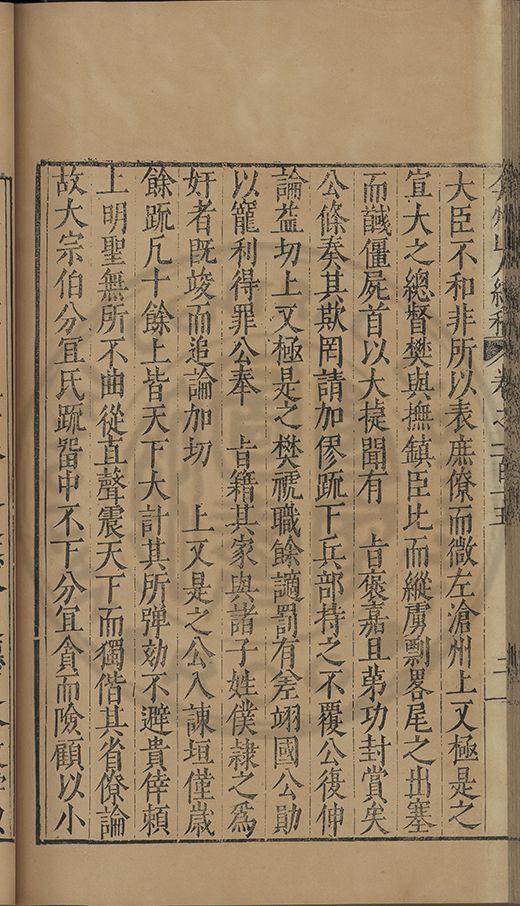 大臣不和非所以表庶僚而微左滄州上又極是之
宣大之總督樊與撫鎮臣比而縱虜剽畧尾之出塞
而馘僵屍首以大捷聞有　旨褒嘉且第功封賞矣
公條奏其欺罔請加僇疏下兵部持之不覆公復伸
論益切上又極是之樊禠職餘謫罰有差翊國公勛
以寵利得罪公奉　旨籍其家與諸子姓僕隷之為
奸者既竣而追論加切　上又是之公入諫垣僅歲
餘疏凡十餘上皆天下大計其所弹劾不避貴倖頼
上明聖無所不曲從直聲震天下而獨偕其省僚論
故大宗伯分冝氏疏畱中不下分冝貪而險顧以小